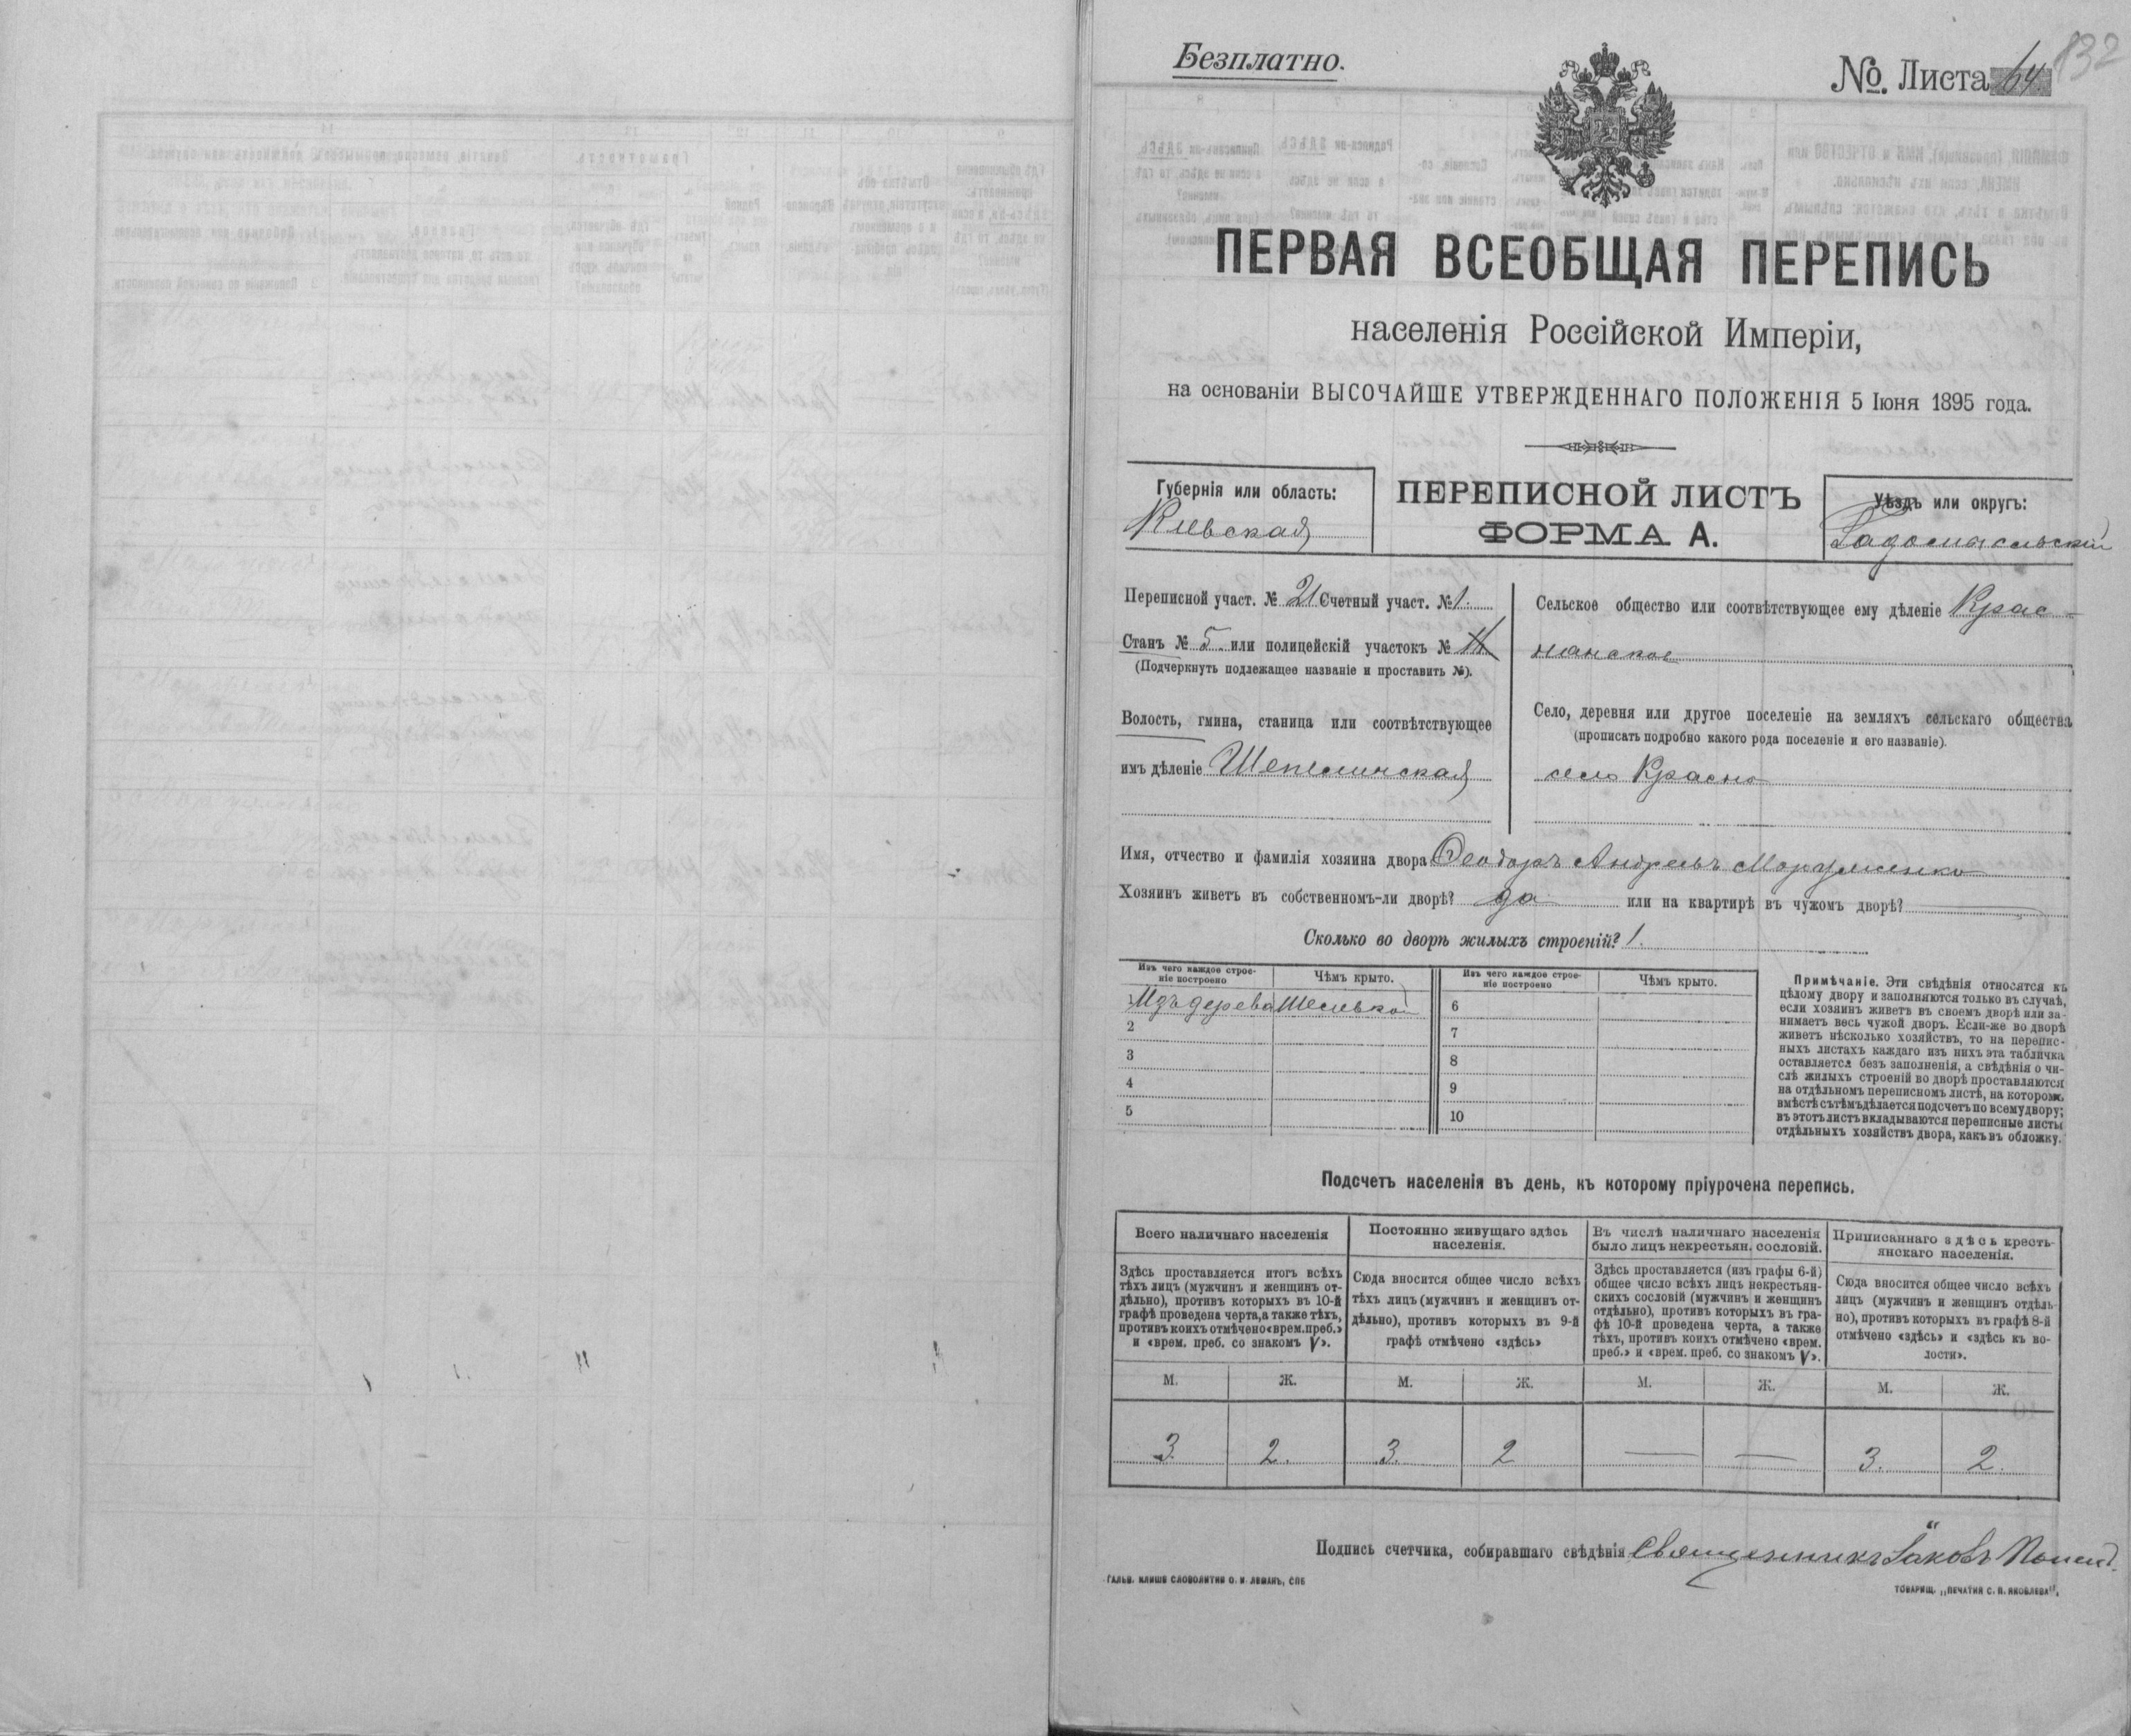 Безплатно.
№. Листа 64
132
ПЕРВАЯ ВСЕОБЩАЯ ПЕРЕПИСЬ
населенія Россійской Имперіи,
на основаніи ВЫСОЧАЙШЕ УТВЕРЖДЕННАГО ПОЛОЖЕНІЯ 5 Іюня 1895 года.
Губернія или область:
Кіевская
ПЕРЕПИСНОЙ ЛИСТЪ
ФОРМА А.
Уѣздъ или округъ:
Радомысльскій
Переписной участ. № 21 Счетный участ. № 1.
Станъ № 5. или полицейскій участокъ №
(Подчеркнуть подлежащее названіе и проставить №).
Волость, гмина, станица или соотвѣтствующее
имъ дѣленіе Шепеличская
Сельское общество или соотвѣтствующее ему дѣленіе Крас-
нянское
Село, деревня или другое поселеніе на земляхъ сельскаго общества
(прописать подробно какого рода поселеніе и его названіе).
село Красно
Имя, отчество и фамилія хозяина двора Ѳеодоръ Андреевъ
Хозяинъ живетъ въ собственномъ-ли дворѣ? да или на квартирѣ въ чужомъ дворѣ?
Сколько во дворѣ жилыхъ строеній? 1.
Изъ чего каждое строе-
ніе построено
Чѣмъ крыто.
Изъ чего каждое строе-
ніе построено
Чѣмъ крыто.
Изъ дерева
6
2
7
3
8
4
9
5
10
Примѣчаніе. Эти свѣдѣнія относятся къ
цѣлому двору и заполняются только въ случаѣ,
если хозяинъ живетъ въ своемъ дворѣ или за-
нимаетъ весь чужой дворъ. Если-же во дворѣ
живетъ нѣсколько хозяйствъ, то на перепис-
ныхъ листахъ каждаго изъ нихъ эта табличка
оставляется безъ заполненія, а свѣдѣнія о чи-
слѣ жилыхъ строеній во дворѣ проставляются
на отдѣльномъ переписномъ листѣ, на которомъ
вмѣстѣ съ тѣмъ дѣлается подсчетъ по всему двору;
въ этотъ листъ вкладываются переписные листы
отдѣльныхъ хозяйствъ двора, какъ въ обложку.
Подсчетъ населенія въ день, къ которому пріурочена перепись.
Всего наличнаго населенія
Здѣсь проставляется итогъ всѣхъ
тѣхъ лицъ (мужчинъ и женщинъ от-
дѣльно), противъ которыхъ въ 10-й
графѣ проведена черта, а также тѣхъ,
противъ коихъ отмѣчено «врем. преб.»
и «врем. преб. со знакомъ V».
Постоянно живущаго здѣсь
населенія.
Сюда вносится общее число всѣхъ
тѣхъ лицъ (мужчинъ и женщинъ от-
дѣльно), противъ которыхъ въ 9-й
графѣ отмѣчено «здѣсь»
Въ числѣ наличнаго населенія
было лицъ некрестьян. сословій.
Здѣсь проставляется (изъ графы 6-й)
общее число всѣхъ лицъ некрестьян-
скихъ сословій (мужчинъ и женщинъ
отдѣльно), противъ которыхъ въ гра-
фѣ 10-й проведена черта, а также
тѣхъ, противъ коихъ отмѣчено «врем.
преб.» и «врем. преб. со знакомъ V».
Приписаннаго здѣсь кресть-
янскаго населенія.
Сюда вносится общее число всѣхъ
лицъ (мужчинъ и женщинъ отдѣль-
но), противъ которыхъ въ графѣ 8-й
отмѣчено «здѣсь» и «здѣсь къ во-
лости».
М. Ж. М. Ж. М. Ж. М. Ж.
3. 2. 3. 2 — — 3. 2.
Подпись счетчика, собиравшаго свѣдѣнія Священникъ Іаковъ
ГАЛЬВ. КЛИШЕ СЛОВОЛИТНИ О. И. ЛЕМАНЪ, СПБ
ТОВАРИЩ. „ПЕЧАТНЯ С. П. ЯКОВЛЕВА“,